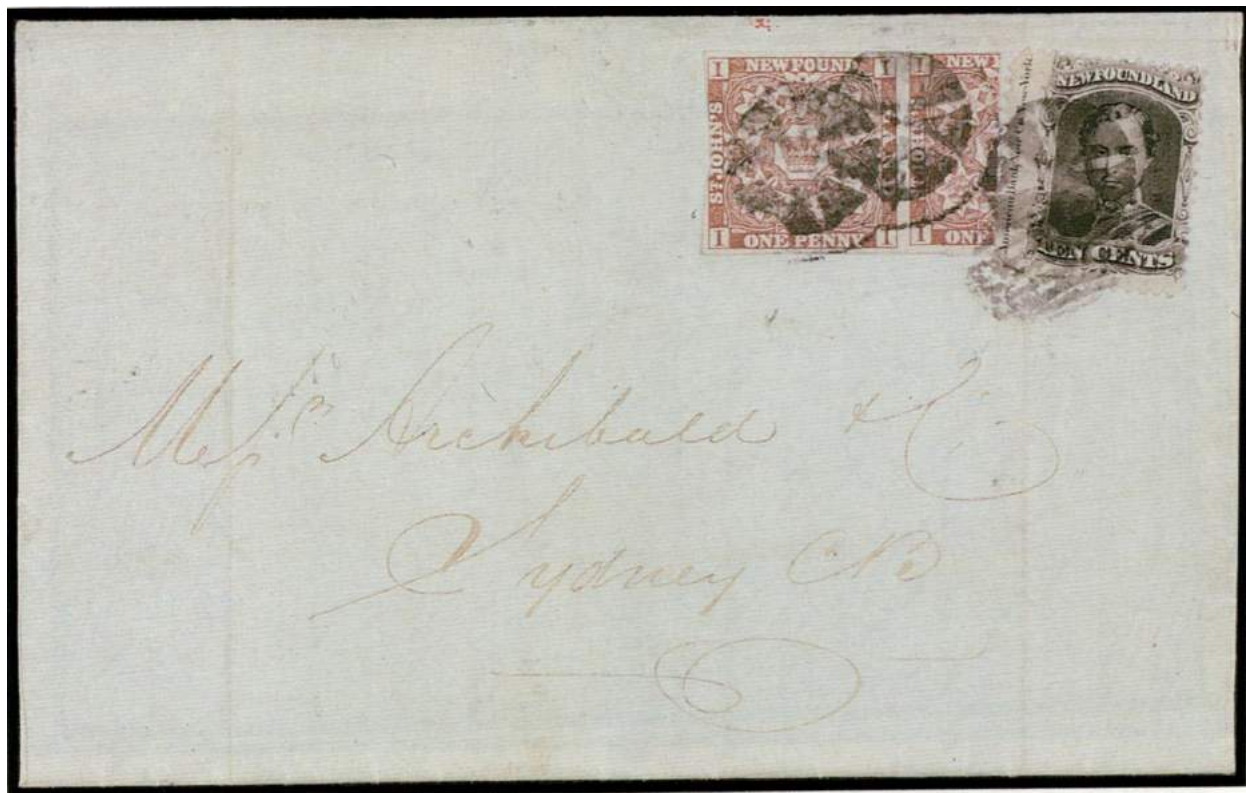 1 NEWFOUND 1
ST. JOHN'S
1 ONE PENNY 1
1 NEW
JOHN'S
1 ONE
NEWFOUNDLAND
TEN CENTS
Mess^rs Archibald & Co
Sydney CB